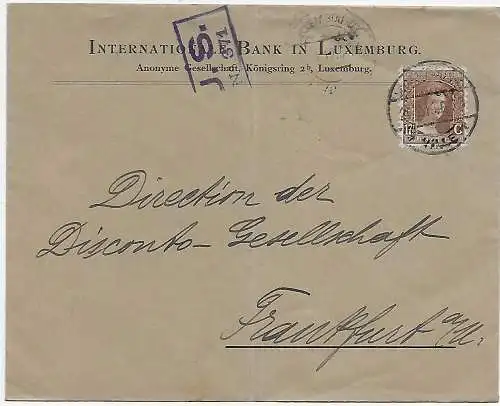 INTERNATIONALE BANK IN LUXEMBURG.
Anonyme Gesellschaft, Königsring 2b, Luxemburg.
J.S.
N 571
17½ C
Direction der
Disconto-Gesellschaft
Frankfurt a/M.